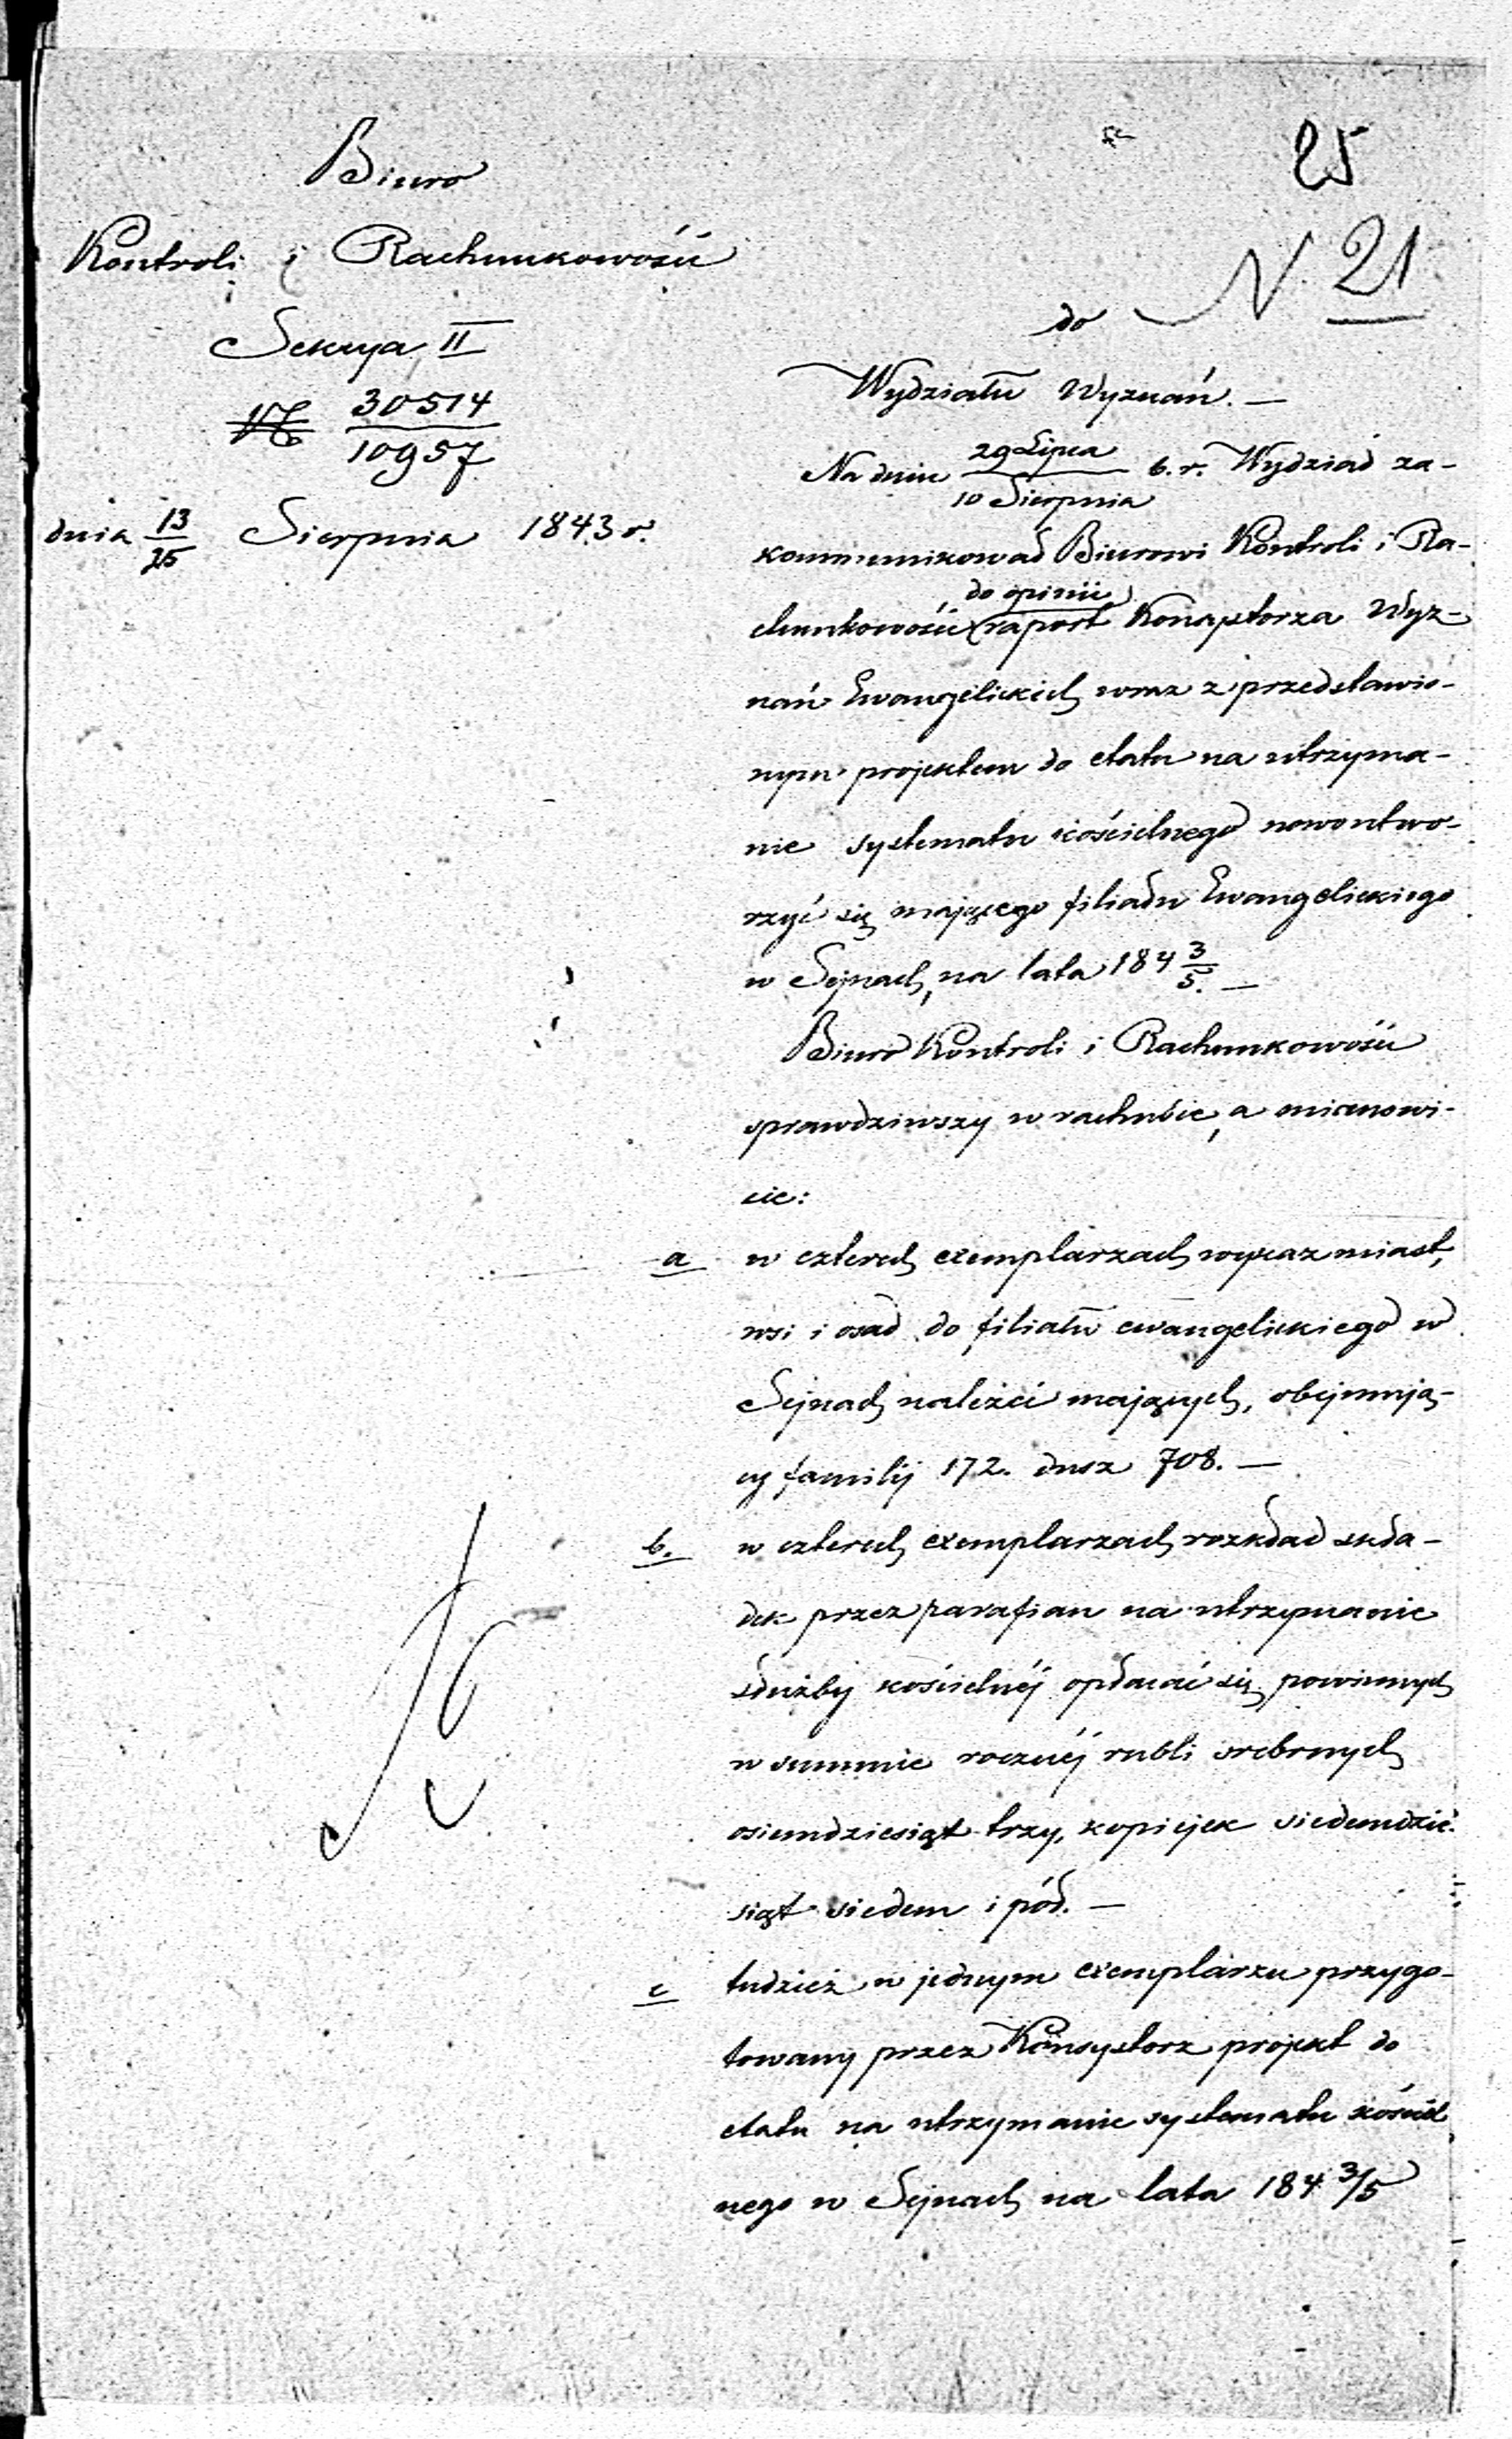 25
N. 21
Biuro
Kontroli i Rachunkowości
Sekcya II
N 30514/10957
dnia 13/25 Sierpnia 1843 r.
do
Wydziału Wyznań. —
Na dniu 29 Lipca/10 Sierpnia b. r. Wydział za-
kommunikował Biurowi Kontroli i Ra-
do opinii
chunkowości raport Konsystorza Wyz-
nań Ewangelickich wraz z przedstawio-
nym projektem do etatu na utrzyma-
nie systematu kościelnego nowoutwo-
rzyć się mającego filiału Ewangelickiego
w Sejnach, na lata 184 3/5. —
Biuro Kontroli i Rachunkowości
sprawdziwszy w rachubie, a mianowi-
cie:
a w czterech exemplarzach wykaz miast,
wsi i osad do filiału ewangelickiego w
Sejnach należeć mających, obejmują-
cy familij 172. dusz 708. —
b. w czterech exemplarzach rozkład skła-
dek przez parafian na utrzymanie
służby kościelnéj opłacać się powinnych
w summie rocznéj rubli srebrnych
osiemdziesiąt trzy, kopiejek siedemdzie-
siąt siedem i pół. —
c tudzież w jednym exemplarzu przygo-
towany przez Konsystorz projekt do
etatu na utrzymanie systematu kościel
nego w Sejnach na lata 184 3/5